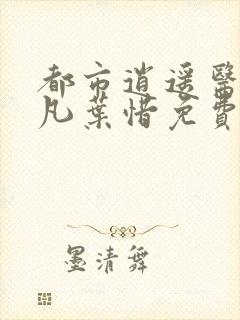 都市逍遥醫
凡葉惜免費
墨清舞